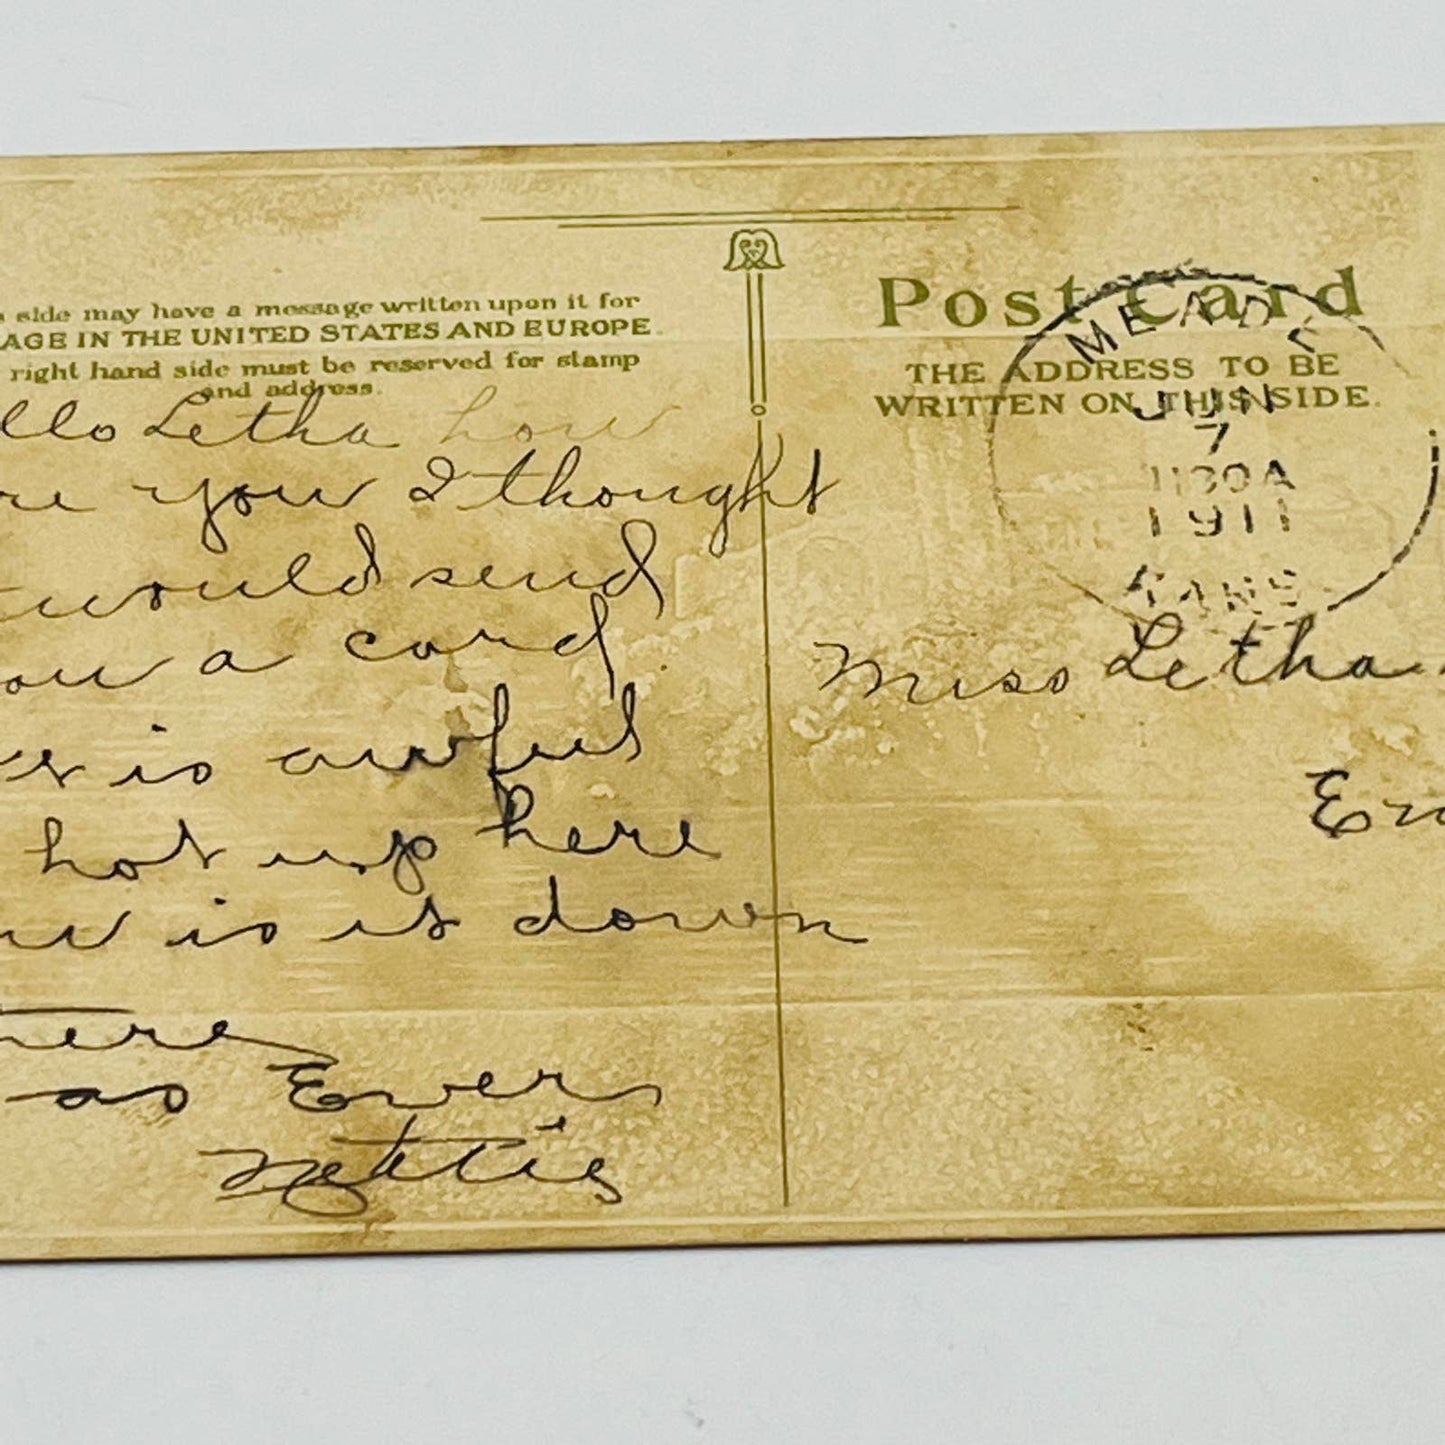 side may have a message written upon it for
AGE IN THE UNITED STATES AND EUROPE.
right hand side must be reserved for stamp
and address.
llo Letha how
re you I thought
would send
ou a card
is awful
hot up here
w is it down
there
as Ever
Nettie
Post Card
THE ADDRESS TO BE
WRITTEN ON THIS SIDE.
MEADE
JUN
7
1130A
1911
KANS
Miss Letha
En